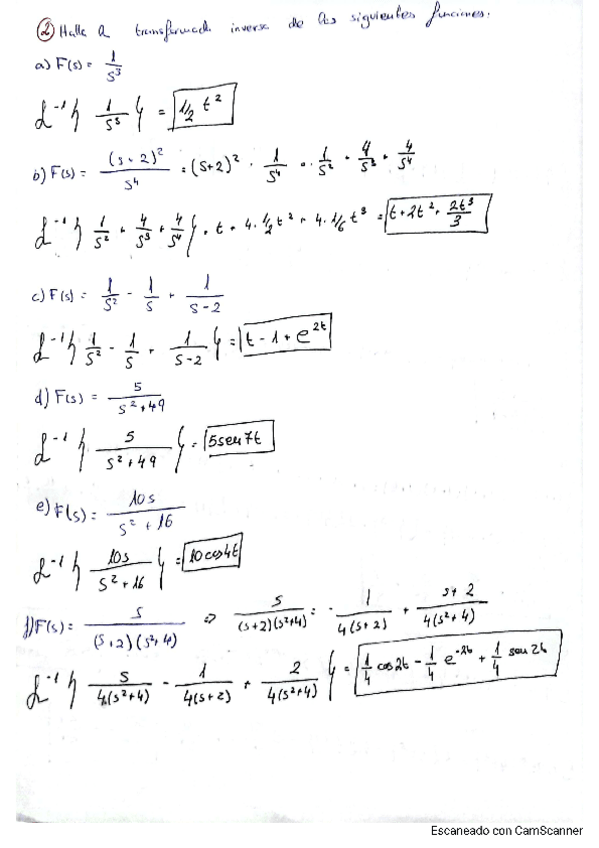 ② Halla la transformada inversa de las siguientes funciones.
a) F(s) = 1/s³
ℒ⁻¹{1/s³} = 1/2 t²
b) F(s) = (s+2)²/s⁴ = (s+2)² · 1/s⁴ = 1/s² + 4/s³ + 4/s⁴
ℒ⁻¹{1/s² + 4/s³ + 4/s⁴} = t + 4·1/2 t² + 4·1/6 t³ = t+2t²+2t³/3
c) F(s) = 1/s² - 1/s + 1/(s-2)
ℒ⁻¹{1/s² - 1/s + 1/(s-2)} = t - 1 + e^2t
d) F(s) = 5/(s²+49)
ℒ⁻¹{5/(s²+49)} = 5sen7t
e) F(s) = 10s/(s²+16)
ℒ⁻¹{10s/(s²+16)} = 10cos4t
f) F(s) = s/((s+2)(s²+4)) ⇒ s/((s+2)(s²+4)) = - 1/(4(s+2)) + (s+2)/(4(s²+4))
ℒ⁻¹{s/(4(s²+4)) - 1/(4(s+2)) + 2/(4(s²+4))} = 1/4 cos2t - 1/4 e^-2t + 1/4 sen2t
Escaneado con CamScanner